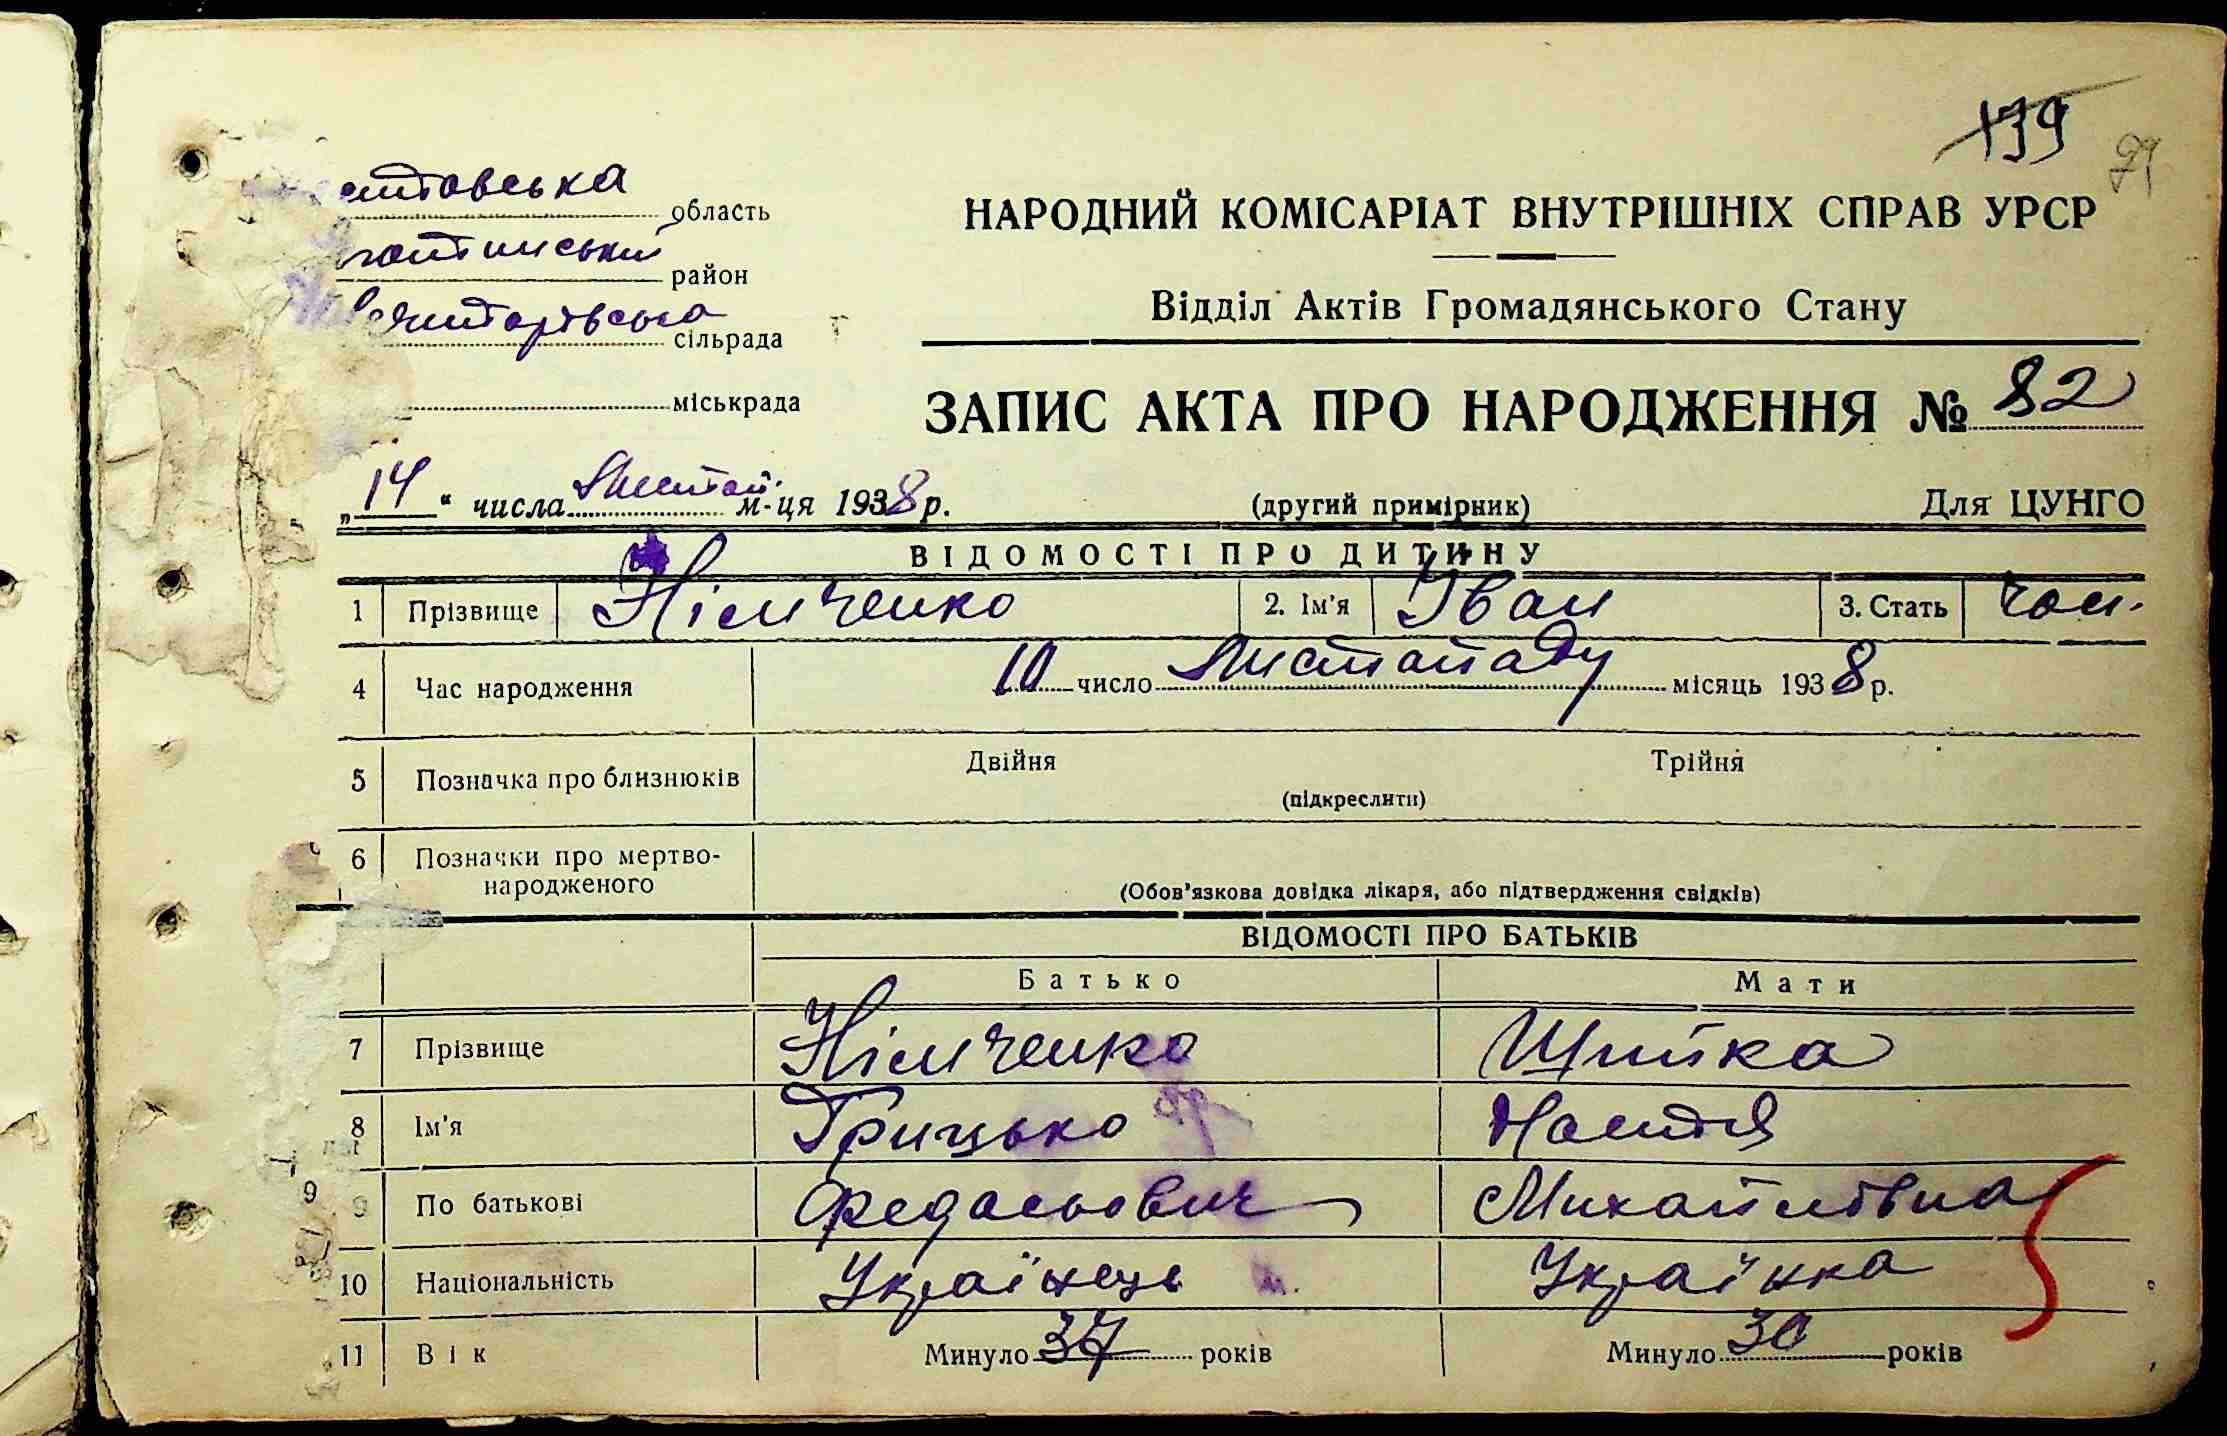 139
79
область
район
сільрада
міськрада
НАРОДНИЙ КОМІСАРІАТ ВНУТРІШНІХ СПРАВ УРСР
Відділ Актів Громадянського Стану
ЗАПИС АКТА ПРО НАРОДЖЕННЯ № 82
„14“ числа листоп. м-ця 1938 р.
(другий примірник)
Для ЦУНГО
ВІДОМОСТІ ПРО ДИТИНУ
1 Прізвище Німченко 2. Ім'я Іван 3. Стать чол.
4 Час народження 10 число листопаду місяць 1938 р.
5 Позначка про близнюків Двійня Трійня
(підкреслити)
6 Позначки про мертво-
народженого
(Обов'язкова довідка лікаря, або підтвердження свідків)
ВІДОМОСТІ ПРО БАТЬКІВ
Батько Мати
7 Прізвище Німченко
8 Ім'я Грицько Настя
9 По батькові Федасьович Михайлівна
10 Національність Українець Українка
11 Вік Минуло 37 років Минуло 30 років